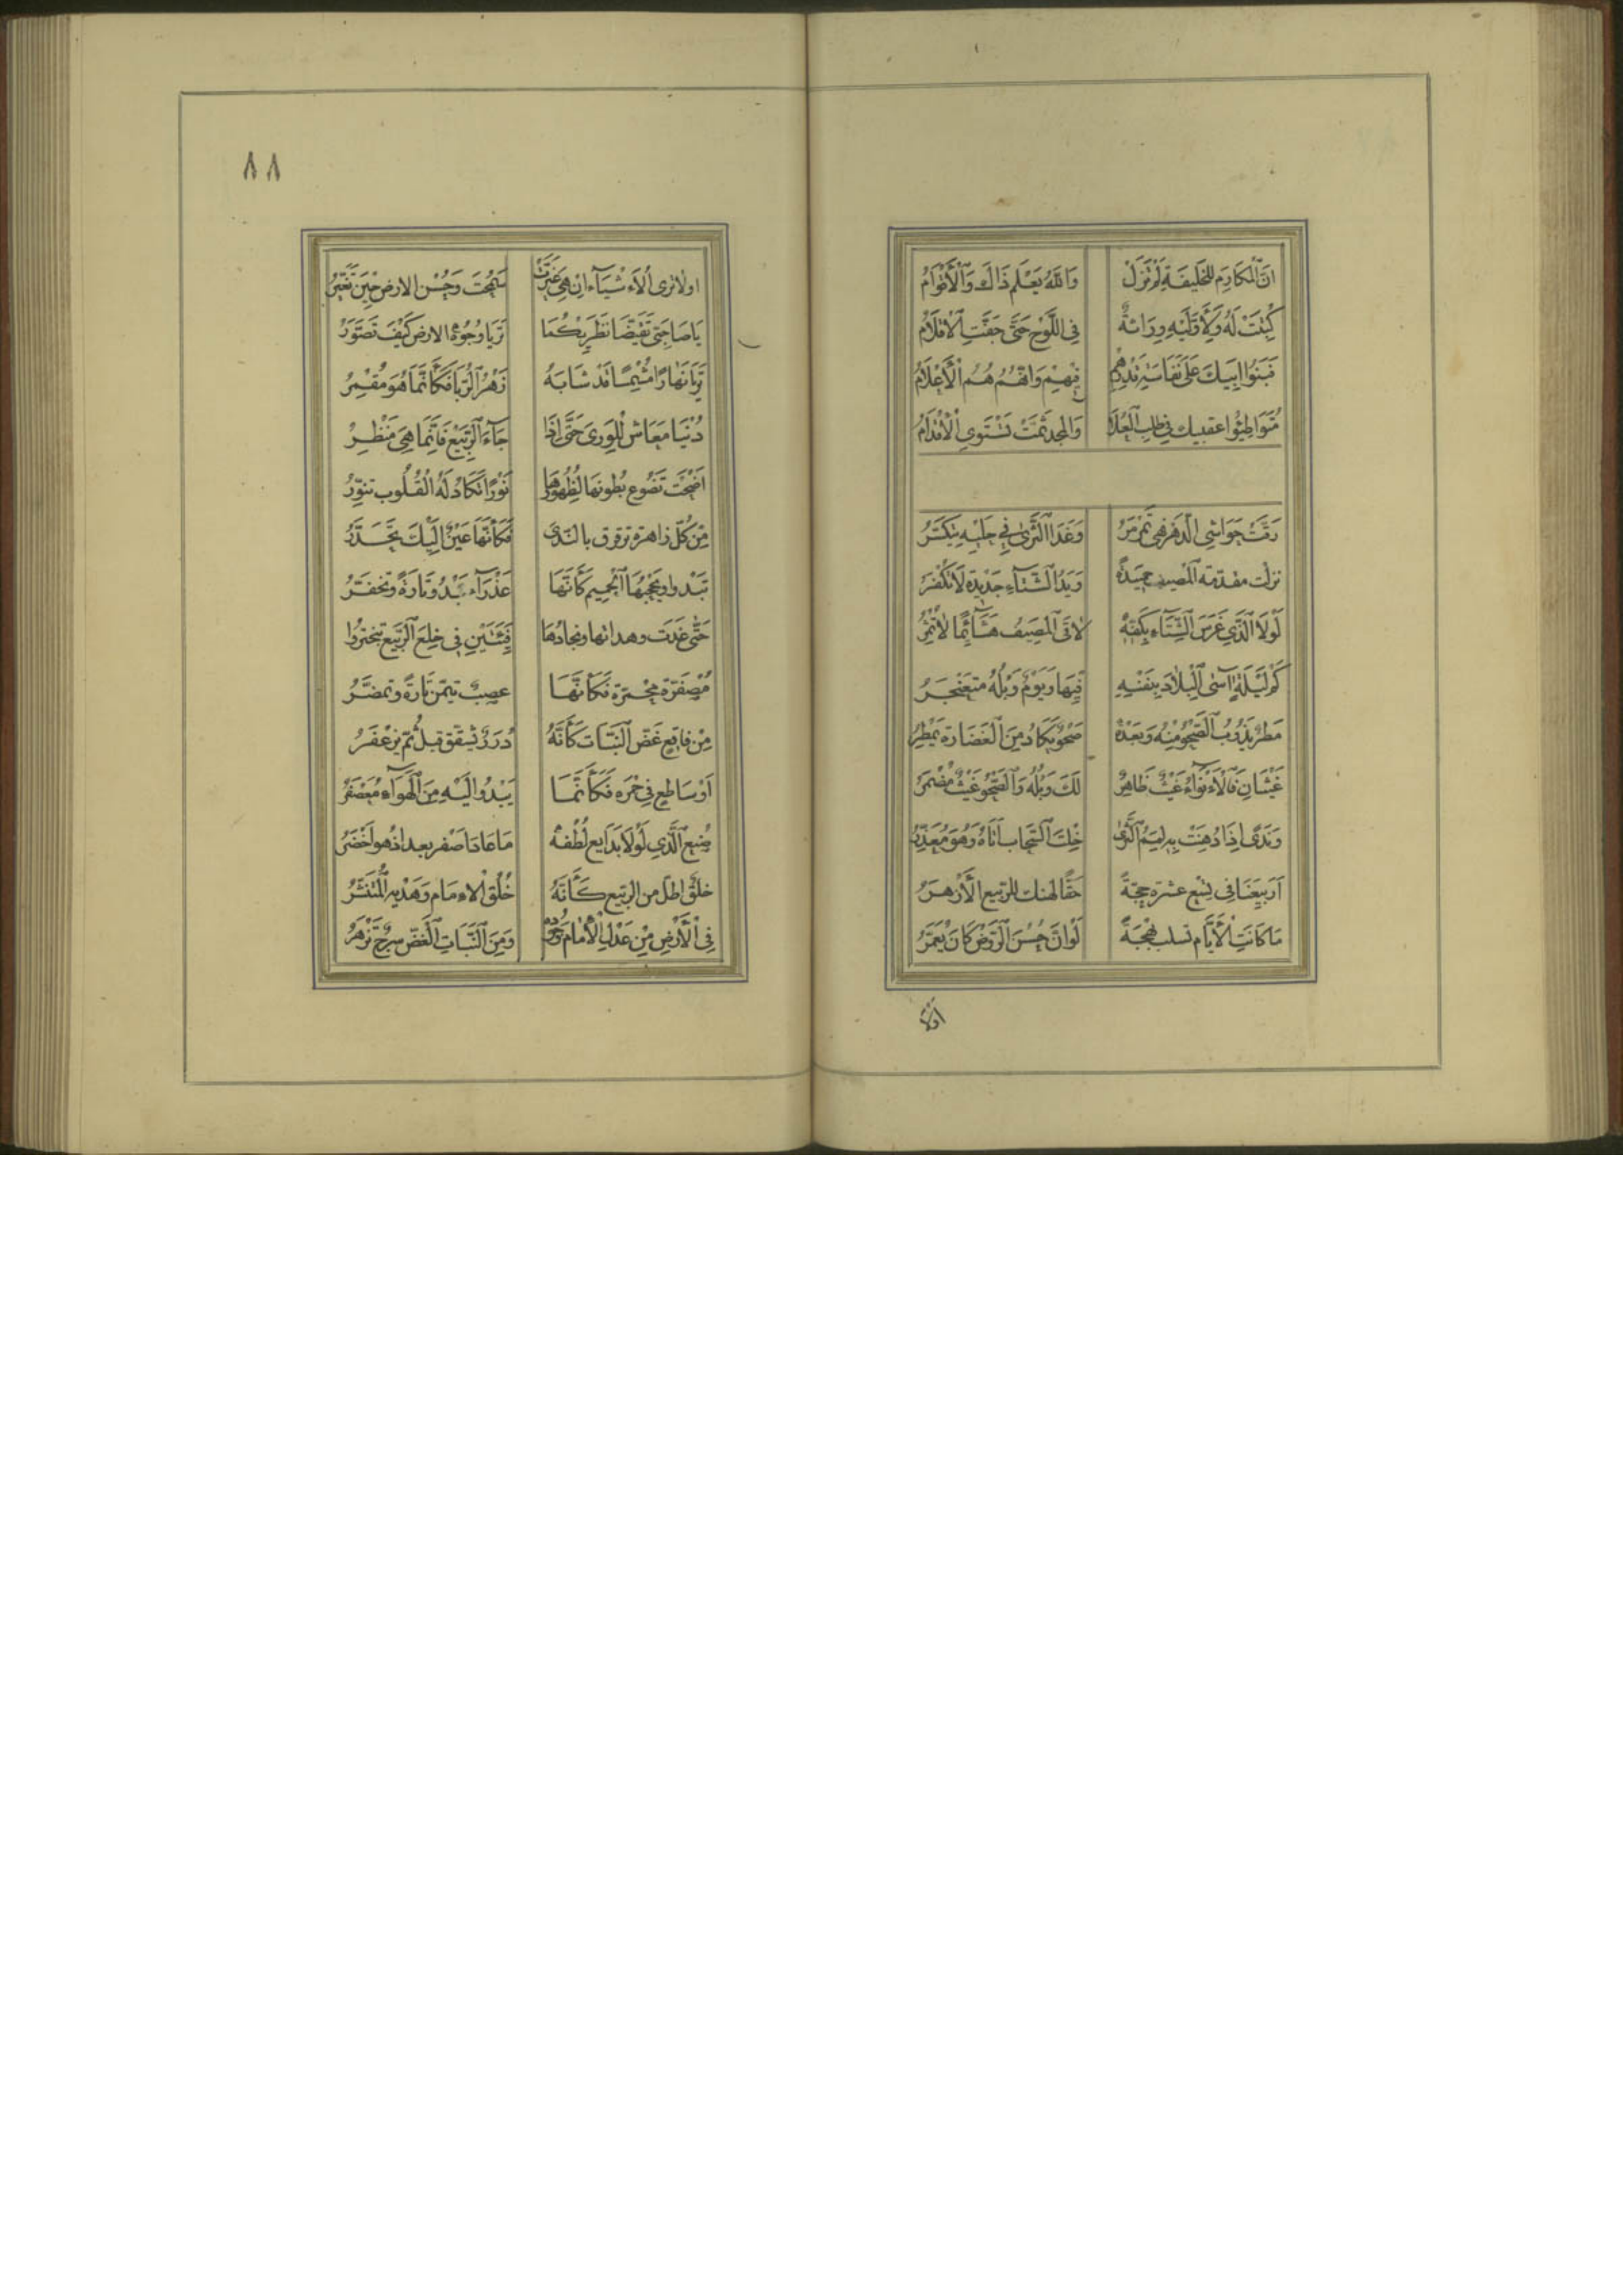 اِنَّ الْمَكَارِمَ لِلْخَلِيفَةِ لَمْ تَزَلْ وَاللهُ يَعْلَم ذَاكَ وَالْأَقْوَامُ
كُتِبَتْ لَهُ وَلِأَوَّلَيْهِ وِرَاثَةً فِي اللَّوْحِ حَتَّى جَفَّتِ الْأَقْلَامُ
مُتَوَاطِئُوا عقبيك في طلب الْعُلَا وَالمجد ثَمَّتَ تَسْتَوِي الْأَقْدَامُ
رَقَّتْ حَوَاشِي الدَّهْرِ فَهِيَ تَمَرْمَرُ وَغَدَا الثَّرَى فِي حَلْيِهِ يَتَكَسَّرُ
نزلت مقدّمة المَصِيفِ حَمِيدَةً وَيَدُ الشِّتَاءِ جَدِيدَة لَا تُكْفَرُ
لَوْلَا الَّذِي غَرَسَ الشِّتَاءُ بِكَفِّهِ لَاقَى الْمَصِيفُ هَشَائِمًا لَا تُثْمِرُ
كَمْ لَيْلَةٍ آسَى الْبِلَادَ بِنَفْسِهِ فِيهَا وَيَوْمٍ وَبْلُهُ مثعنجرُ
مَطَرٌ يَذُوبُ الصَّحْوُ مِنْهُ وَبَعْدَهُ صَحْوٌ يَكَادُ مِنَ الْغَضَارَة يُمْطِرُ
غَيْثَانِ فَالْأَنْوَاءُ غَيْثٌ ظَاهِرٌ لَكَ وَبْلُهُ وَالصَّحْوُ غَيْثٌ مُضْمَرُ
وَنَدًى اِذَا دُهِنَتْ بِهِ لِمَمُ الثَّرَى خِلْتَ السَّحَابَ أَتَاهُ وَهُوَ مُعَذِّرُ
اَرَبِيعَنَا في تِسْع عشرة حِجّةً حَقًّا لهنك للرّبيع الْأَزْهَرُ
مَا كَانَتِ الْأَيَّام تسلب بَهْجَةً لَوْ اَنَّ حُسْنَ الرَّوْضِ كَانَ يُعَمَّرُ
اولا
٨٨
اولا ترى الْأَشْيَآءَ اِنْ هِيَ غُيِّرَتْ سَمُجَتْ وَحُسْن الارض حِينَ تُغَيَّرُ
يَا صَاحِبَيَّ تَقَصَّيَا نَظَرَيْكُمَا تَرَيَا وُجُوهَ الارض كَيْفَ تَصَوَّرُ
تَرَيَا نَهَارًا مُشْمِسًا قَدْ شَابَهُ زَهْرُ الرُّبَا فَكَأَنَّمَا هُوَ مُقْمِرُ
دُنْيَا مَعَاش لِلْوَرَى حَتَّى اِذَا جَآءَ الرَّبِيْع فَاِنَّمَا هِيَ مَنْظَرُ
اَضْحَتْ تَصُوغ بُطُونهَا لِظُهُورِهَا نَوْرًا تَكَادُ لَهُ الْقُلُوب تنوِّرُ
مِنْ كُلّ زاهرة ترقرق بالنّدى فَكَأَنَّهَا عَيْنٌ اِلَيْكَ تَحَدَّرُ
تَبْدو ويَحْجُبُهَا الْجَمِيم كَأَنَّهَا عَذْرَآء تَبْدُو تَارَةً وتخفّرُ
حَتَّى غَدَت وهداتها ونجادُهَا فِئَتَيْنِ فِي خِلَعِ الرَّبِيْع تبختر
مُصْفَرَّة مُحْمَرّة فَكَأَنَّهَا عصبٌ تيمّن تَارَةً وتمضّرُ
مِنْ فاقِعٍ غَضّ النَّبَاتِ كَأَنَّهُ دُرَرٌ تشقّق قبلُ ثمّ تزعْفَرُ
اَوْ سَاطِعٍ فِي حُمْرَة فَكَأَنَّمَا يَدْنُو اِلَيْهِ مِنَ الْهَوَآءِ مُعَصْفَرُ
صُنع الَّذِي لَوْلَا بَدَايع لُطْفِهِ مَا عَادَ اَصْفر بعد اذْ هو اَخْضَرُ
خلقٌ اطلّ من الرّبيع كَأَنَّهُ خُلُق الامَام وَهَدْيه الْمُتَنَشِّرُ
فِي الْأَرْضِ مِنْ عَدْلِ الْأمَام وَجُودِهِ وَمِنَ النَّبَاتِ الْغَضّ سرجٌ تَزْهَرُ